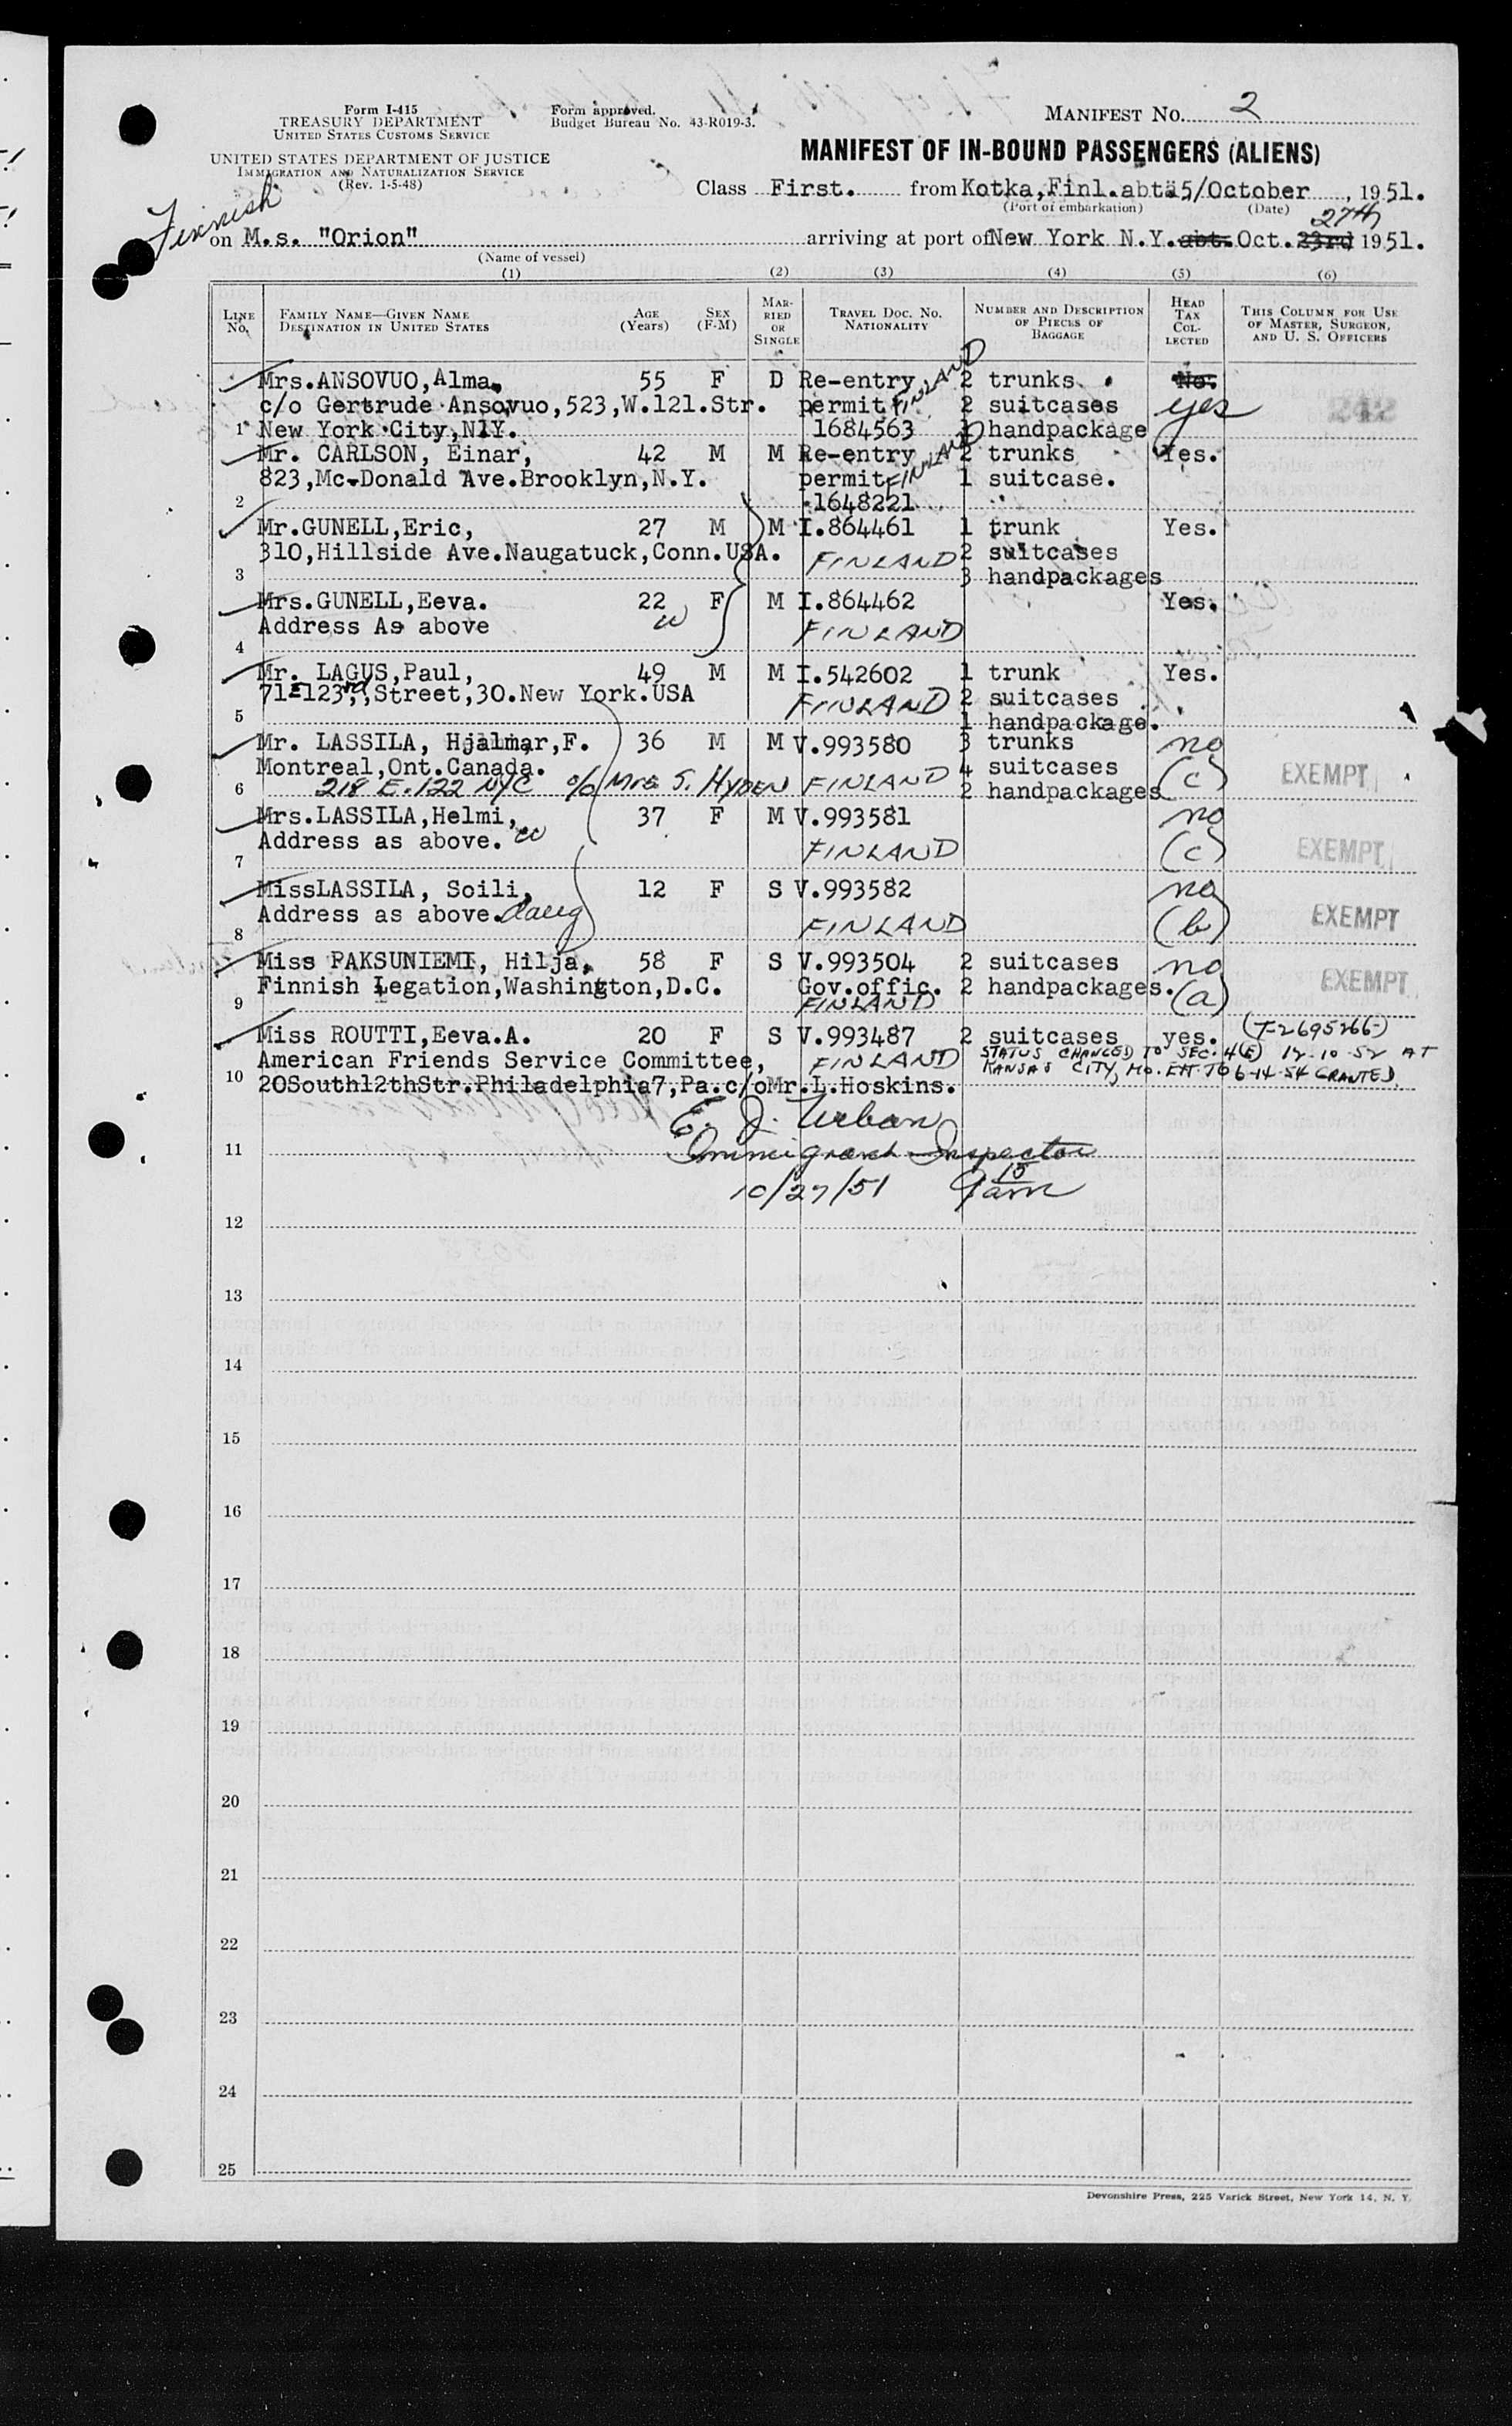 Form I-415
TREASURY DEPARTMENT
UNITED STATES CUSTOMS SERVICE
UNITED STATES DEPARTMENT OF JUSTICE
IMMIGRATION AND NATURALIZATION SERVICE
(Rev. 1-5-48)
Form approved.
Budget Bureau No. 43-R019-3.
MANIFEST NO. 2
MANIFEST OF IN-BOUND PASSENGERS (ALIENS)
Class First. from Kotka, Finl. abt. 5/October, 1951.
(Port of embarkation) (Date)
Finnish
27th
on M.s. "Orion" arriving at port of New York N.Y. abt. Oct. 23rd 1951.
(Name of vessel)
(1) (2) (3) (4) (5) (6)
LINE NO. FAMILY NAME—GIVEN NAME DESTINATION IN UNITED STATES AGE (Years) SEX (F-M) MARRIED OR SINGLE TRAVEL DOC. NO. NATIONALITY NUMBER AND DESCRIPTION OF PIECES OF BAGGAGE HEAD TAX COLLECTED THIS COLUMN FOR USE OF MASTER, SURGEON, AND U. S. OFFICERS
Mrs. ANSOVUO, Alma, 55 F D Re-entry FINLAND 2 trunks No.
c/o Gertrude Ansovuo, 523, W.121.Str. permit 2 suitcases yes
1 New York City, N.Y. 1684563 1 handpackage
Mr. CARLSON, Einar, 42 M M Re-entry FINLAND 2 trunks Yes.
823, Mc-Donald Ave. Brooklyn, N.Y. permit 1 suitcase.
2 1648221
Mr. GUNELL, Eric, 27 M M I.864461 1 trunk Yes.
310, Hillside Ave. Naugatuck, Conn. USA. FINLAND 2 suitcases
3 3 handpackages
Mrs. GUNELL, Eeva. 22 F M I.864462 Yes.
Address As above w FINLAND
4
Mr. LAGUS, Paul, 49 M M I.542602 1 trunk Yes.
71E 123rd, Street, 30. New York. USA FINLAND 2 suitcases
5 1 handpackage.
Mr. LASSILA, Hjalmar, F. 36 M M V.993580 3 trunks no
Montreal, Ont. Canada. 4 suitcases EXEMPT
6 218 E. 122 NYC c/o Mrs S. HYDEN FINLAND 2 handpackages (c)
Mrs. LASSILA, Helmi, 37 F M V.993581 no
Address as above. w FINLAND (c) EXEMPT
7
Miss LASSILA, Soili, 12 F S V.993582 no
Address as above. daug FINLAND (b) EXEMPT
8
Miss PAKSUNIEMI, Hilja, 58 F S V.993504 2 suitcases no
Finnish Legation, Washington, D.C. Gov. offic. 2 handpackages. (a) EXEMPT
9 FINLAND
Miss ROUTTI, Eeva. A. 20 F S V.993487 2 suitcases yes. (T-2695266)
American Friends Service Committee, FINLAND STATUS CHANGED TO SEC. 4(E) 12-10-52 AT
10 20South12thStr. Philadelphia7, Pa. c/o Mr. L. Hoskins. KANSAS CITY, MO. EXT TO 6-14-54 GRANTED.
E. J. Urban
11 Immigrant Inspector
10/27/51 9 15 am
12
13
14
15
16
17
18
19
20
21
22
23
24
25
Devonshire Press, 225 Varick Street, New York 14, N. Y.